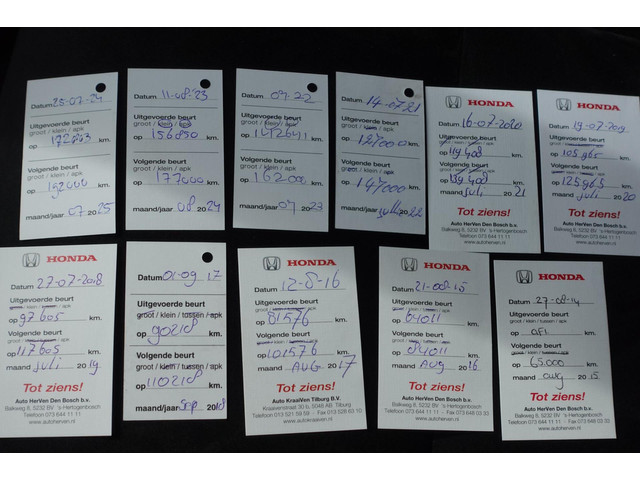 Datum 25-07-24
Uitgevoerde beurt
groot / klein / apk
op 172863 km.
Volgende beurt
groot / klein / apk
op 192000 km.
maand/jaar 07 2025
Datum 11-08-'23
Uitgevoerde beurt
groot / klein / apk
op 156850 km.
Volgende beurt
groot / klein / apk
op 177000 km.
maand/jaar 08 2024
Datum 07-22
Uitgevoerde beurt
groot / klein / apk
op 142641 km.
Volgende beurt
groot / klein / apk
op 162000 km.
maand/jaar 07 2023
Datum 14-07-21
Uitgevoerde beurt
groot / klein / apk
op 127000 km.
Volgende beurt
groot / klein / apk
op 147000 km.
maand/jaar juli 2022
HONDA
Datum 16-07-2020
Uitgevoerde beurt
op 119408 km.
Volgende beurt
op 139408 km.
maand juli 20 21
Tot ziens!
Auto HerVen Den Bosch b.v.
Balkweg 8, 5232 BV 's Hertogenbosch
Telefoon 073 644 11 11
www.autoherven.nl
HONDA
Datum 19-07-2019
Uitgevoerde beurt
op 105965 km.
Volgende beurt
op 125965 km.
maand juli 20 20
Tot ziens!
Auto HerVen Den Bosch b.v.
Balkweg 8, 5232 BV 's Hertogenbosch
Telefoon 073 644 11 11
www.autoherven.nl
HONDA
Datum 27-07-2018
Uitgevoerde beurt
groot / klein / tussen / apk
op 97605 km.
Volgende beurt
groot / klein / tussen / apk
op 117605 km.
maand juli 20 19
Tot ziens!
Auto HerVen Den Bosch b.v.
Balkweg 8, 5232 BV 's Hertogenbosch
Telefoon 073 644 11 11
www.autoherven.nl
Datum 01-09 17
Uitgevoerde beurt
groot / klein / tussen / apk
op 90218 km.
Volgende beurt
groot / klein / tussen / apk
op 110218 km.
maand/jaar Sep 2018
HONDA
Datum 12-8-16
Uitgevoerde beurt
groot / klein / tussen / apk
op 81576 km.
Volgende beurt
groot / klein / tussen / apk
op 101576 km.
maand AUG 20 17
Tot ziens!
Auto KraaiVen Tilburg B.V.
Kraaivenstraat 30 b, 5048 AB Tilburg
Telefoon 013 521 59 68 - Fax 013 528 63 10
www.autokraaiven.nl
HONDA
Datum 21-08-15
Uitgevoerde beurt
groot / klein / tussen / apk
op 64011 km.
Volgende beurt
groot / klein / tussen / apk
op 84011 km.
maand Aug 20 16
Tot ziens!
Auto HerVen Den Bosch b.v.
Balkweg 8, 5232 BV 's Hertogenbosch
Telefoon 073 644 11 11 - Fax 073 648 03 33
www.autoherven.nl
HONDA
Datum 27-08-14
Uitgevoerde beurt
groot / klein / tussen / apk
op km.
Volgende beurt
groot / klein / tussen / apk
op 65.000 km.
maand aug 20 15
Tot ziens!
Auto HerVen Den Bosch b.v.
Balkweg 8, 5232 BV 's Hertogenbosch
Telefoon 073 644 11 11 - Fax 073 648 03 33
www.autoherven.nl